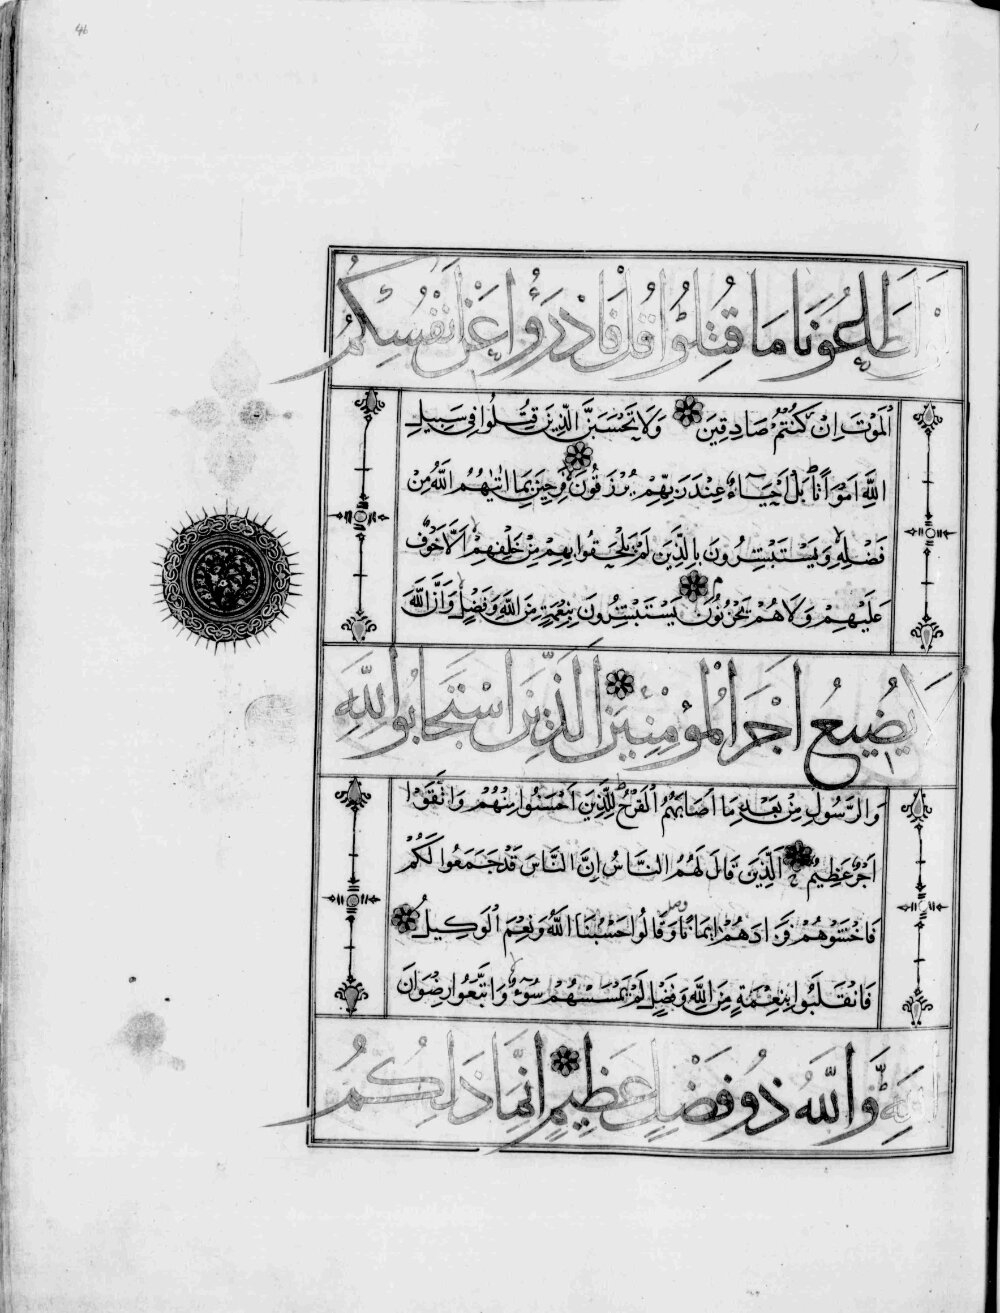 46
لَوْ أَطَاعُونَا مَا قُتِلُوا قُلْ فَادْرَؤُا عَنْ أَنْفُسِكُمُ
الْمَوْتَ اِنْ كُنْتُمْ صَادِقِينَ وَلَا تَحْسَبَنَّ الَّذِينَ قُتِلُوا فِي سَبِيلِ
اللَّهِ اَمْوَاتًا بَلْ اَحْيَاءٌ عِنْدَ رَبِّهِمْ يُرْزَقُونَ فَرِحِينَ بِمَا اٰتٰيهُمُ اللَّهُ مِنْ
فَضْلِهِ وَيَسْتَبْشِرُونَ بِالَّذِينَ لَمْ يَلْحَقُوا بِهِمْ مِنْ خَلْفِهِمْ اَلَّا خَوْفٌ
عَلَيْهِمْ وَلَا هُمْ يَحْزَنُونَ يَسْتَبْشِرُونَ بِنِعْمَةٍ مِنَ اللَّهِ وَفَضْلٍ وَاَنَّ اللَّهَ
لَا يُضِيعُ اَجْرَ الْمُؤْمِنِينَ الَّذِينَ اسْتَجَابُوا لِلَّهِ
وَالرَّسُولِ مِنْ بَعْدِ مَا اَصَابَهُمُ الْقَرْحُ لِلَّذِينَ اَحْسَنُوا مِنْهُمْ وَاتَّقَوْا
اَجْرٌ عَظِيمٌ الَّذِينَ قَالَ لَهُمُ النَّاسُ اِنَّ النَّاسَ قَدْ جَمَعُوا لَكُمْ
فَاخْشَوْهُمْ فَزَادَهُمْ اِيمَانًا وَقَالُوا حَسْبُنَا اللَّهُ وَنِعْمَ الْوَكِيلُ
فَانْقَلَبُوا بِنِعْمَةٍ مِنَ اللَّهِ وَفَضْلٍ لَمْ يَمْسَسْهُمْ سُوءٌ وَاتَّبَعُوا رِضْوَانَ
اللَّهِ وَاللَّهُ ذُو فَضْلٍ عَظِيمٍ اِنَّمَا ذَلِكُمُ